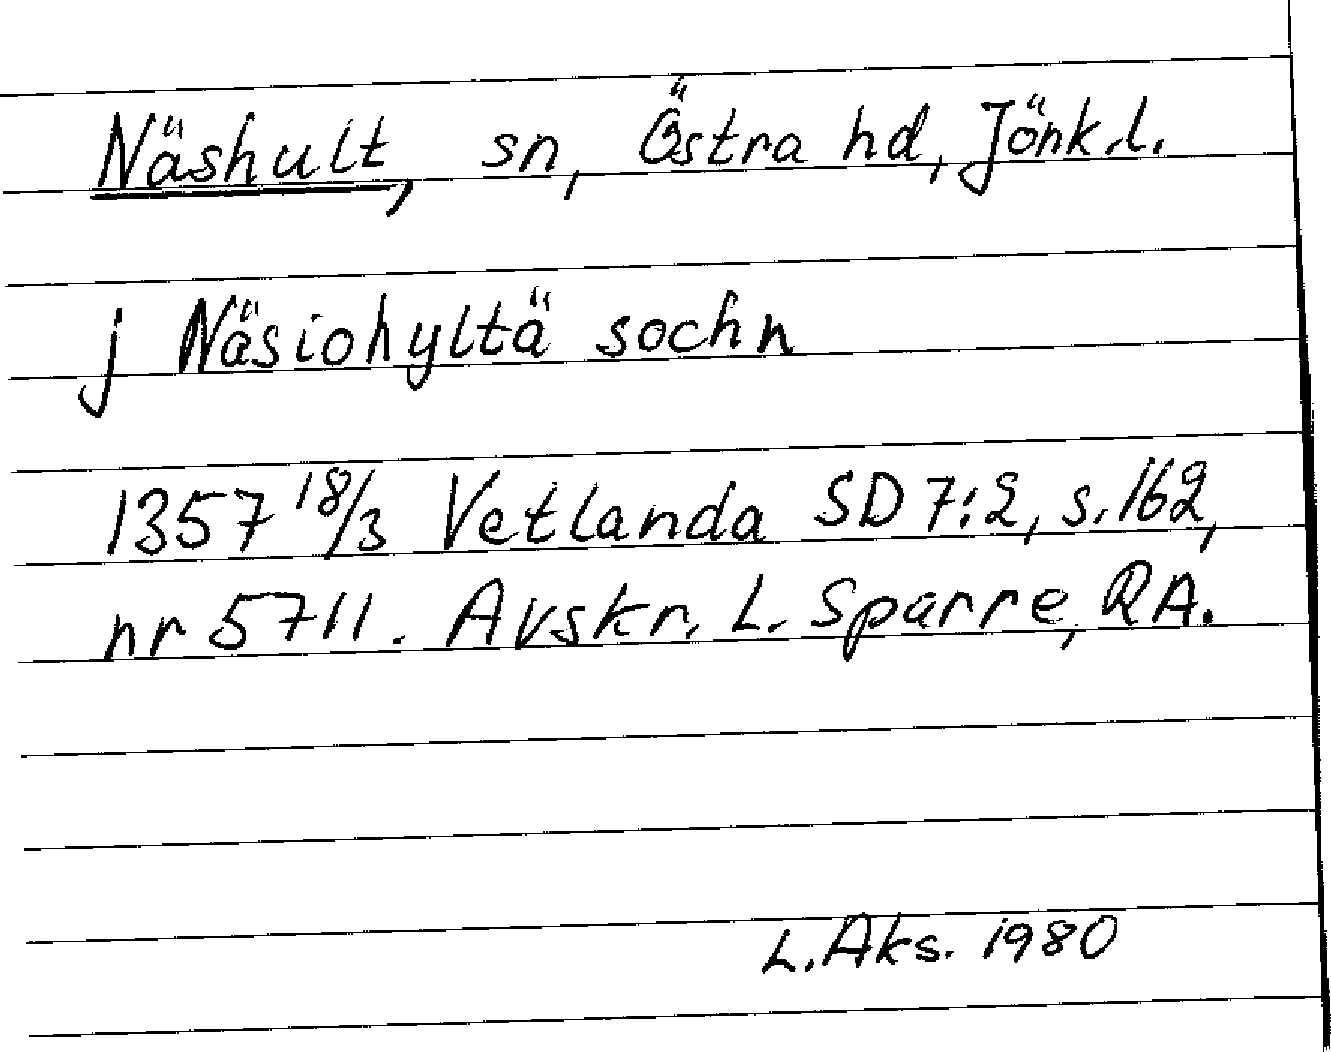 Näshult, sn, Östra hd, Jönk.l.
j Näsiohyltä sochn
1357 18/3 Vetlanda SD 7:2, s. 162,
nr 5711. Avskr. L. Sparre, RA.
L. Aks. 1980